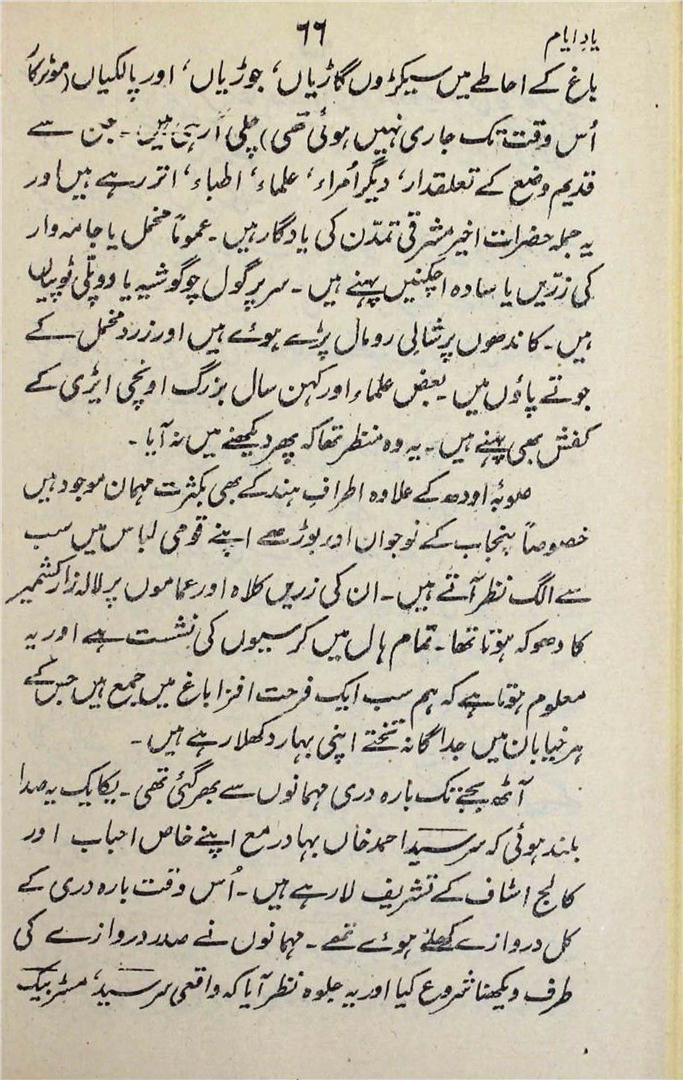 یادِ ایام
۶۶
باغ کے احاطے میں سیکڑوں گاڑیاں، جوڑیاں، اور پالکیاں (موٹر کار
اُس وقت تک جاری نہیں ہوئی تھی) چلی آ رہی ہیں۔ جن سے
قدیم وضع کے تعلقدار، دیگر اُمراء، علماء، اطباء، اتر رہے ہیں اور
یہ جملہ حضرات اخیر مشرقی تمدّن کی یادگار ہیں۔ عموماً مخمل یا جامہ وار
کی زرّیں یا سادہ اچکنیں پہنے ہیں۔ سر پر گول چوگوشیہ یا دوپلّی ٹوپیاں
ہیں۔ کاندھوں پر شالی رومال پڑے ہوئے ہیں اور زرد مخمل کے
جوتے پاؤں میں۔ بعض علماء اور کہن سال بزرگ اونچی ایڑی کے
کفش بھی پہنے ہیں۔ یہ وہ منظر تھا کہ پھر دیکھنے میں نہ آیا۔
صوبۂ اودھ کے علاوہ اطرافِ ہند کے بھی بکثرت مہمان موجود ہیں
خصوصاً پنجاب کے نوجوان اور بوڑھے اپنے قومی لباس میں سب
سے الگ نظر آتے ہیں۔ ان کی زریں کلاہ اور عماموں پر لالہ زار کشمیر
کا دھوکہ ہوتا تھا۔ تمام ہال میں کرسیوں کی نشست ہے اور یہ
معلوم ہوتا ہے کہ ہم سب ایک فرحت افزا باغ میں جمع ہیں جس کے
ہر خیابان میں جداگانہ تختے اپنی بہار دکھلا رہے ہیں۔
آٹھ بجے تک بارہ دری مہمانوں سے بھر گئی تھی۔ یکایک یہ صدا
بلند ہوئی کہ سر سید احمد خاں بہادر مع اپنے خاص احباب اور
کالج اسٹاف کے تشریف لا رہے ہیں۔ اُس وقت بارہ دری کے
کل دروازے کھلے ہوئے تھے۔ مہمانوں نے صدر دروازے کی
طرف دیکھنا شروع کیا اور یہ جلوہ نظر آیا کہ واقعی سر سید، مسٹر بیک